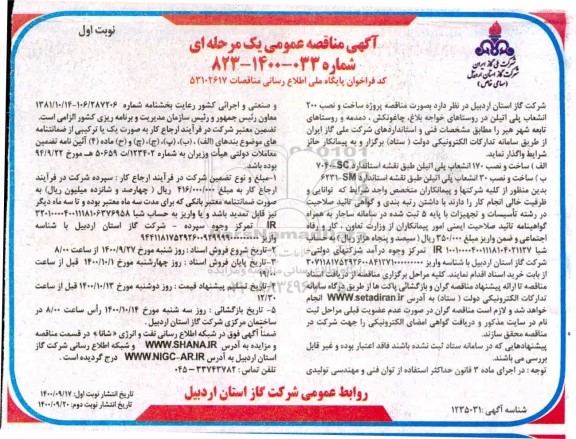 نوبت اول
شرکت ملی گاز ایران
شرکت گاز استان اردبیل
(سهامی خاص)
آگهی مناقصه عمومی یک مرحله ای
شماره ۰۳۳-۱۴۰۰-۸۲۳
کد فراخوان پایگاه ملی اطلاع رسانی مناقصات ۵۳۱۰۲۶۱۷
شرکت گاز استان اردبیل در نظر دارد بصورت مناقصه پروژه ساخت و نصب ۲۰۰
انشعاب پلی اتیلن در روستاهای خواجه بلاغ، چاغونکش، دمدمه و روستاهای
تابعه شهر هیر را مطابق مشخصات فنی و استانداردهای شرکت ملی گاز ایران
از طریق سامانه تدارکات الکترونیکی دولت (ستاد) برگزار و به پیمانکار حائز
شرایط واگذار نماید.
الف) ساخت و نصب ۱۷۰ انشعاب پلی اتیلن طبق نقشه استاندارد SC-۷۰۴
ب) ساخت و نصب ۳۰ انشعاب پلی اتیلن طبق نقشه استاندارد SM-۶۲۳۱
بدین منظور از کلیه شرکتها و پیمانکاران متخصص واجد شرایط که توانایی و
ظرفیت خالی انجام کار را دارند با داشتن رتبه بندی و گواهی تائید صلاحیت
در رشته تأسیسات و تجهیزات با پایه ۵ ثبت شده در سامانه ساجار به همراه
گواهینامه تائید صلاحیت ایمنی امور پیمانکاران از وزارت تعاون، کار و رفاه
اجتماعی و ضمن واریز مبلغ ۳۵۰/۰۰۰ ریال (سیصد و پنجاه هزار ریال) به حساب
شبا IR تمرکز وجوه درآمد شرکتهای دولتی-
شرکت گاز استان اردبیل با شناسه واریز
از بابت خرید اسناد اقدام نمایند. کلیه مراحل برگزاری مناقصه از دریافت اسناد
مناقصه تا ارائه پیشنهاد مناقصه گران و بازگشائی پاکت ها از طریق درگاه سامانه
تدارکات الکترونیکی دولت (ستاد) به آدرس www.setadiran.ir انجام
خواهد شد و لازم است مناقصه گران در صورت عدم عضویت قبلی مراحل ثبت
نام در سایت مذکور و دریافت گواهی امضای الکترونیکی را جهت شرکت در
مناقصه محقق سازند.
پیشنهادهایی که در سامانه ستاد ثبت نشده باشند فاقد اعتبار بوده و غیر قابل
بررسی می باشند.
توجه: در اجرای ماده ۳ قانون حداکثر استفاده از توان فنی و مهندسی تولیدی
و صنعتی و اجرائی کشور رعایت بخشنامه شماره ۱۰۶/۲۸۷۲۰۶-۱۳۸۱/۱۰/۱۴
معاون رئیس جمهور و رئیس سازمان مدیریت و برنامه ریزی کشور الزامی است.
تضمین معتبر شرکت در فرآیند ارجاع کار به صورت یک یا ترکیبی از ضمانتنامه
های موضوع بندهای (الف)، (ب)، (پ)، (ج)، (چ) و (ح) ماده (۴) آئین نامه تضمین
معاملات دولتی هیأت وزیران به شماره ۱۲۳۴۰۲/ت ۵۰۶۵۹ هـ مورخه ۹۴/۹/۲۲
بوده باشد.
۱-مبلغ و نوع تضمین شرکت در فرآیند ارجاع کار: سپرده شرکت در فرآیند
ارجاع کار به مبلغ ۴۱۶/۰۰۰/۰۰۰ ریال (چهارصد و شانزده میلیون ریال) به
صورت ضمانتنامه معتبر بانکی که برای مدت سه ماه معتبر بوده و تا سه ماه دیگر
نیز قابل تمدید باشد و یا واریز به حساب شبا
IR تمرکز وجوه سپرده - شرکت گاز استان اردبیل با شناسه
واریز
۲-تاریخ شروع فروش اسناد: روز شنبه مورخ ۱۴۰۰/۹/۲۷ از ساعت ۸/۰۰
۳-تاریخ پایان فروش اسناد: روز چهارشنبه مورخ ۱۴۰۰/۱۰/۱ قبل از ساعت
۴-تاریخ تسلیم پیشنهاد قیمت: روز دوشنبه مورخ ۱۴۰۰/۱۰/۱۳ قبل از ساعت
۱۲/۳۰
۵- تاریخ بازگشائی: روز سه شنبه مورخ ۱۴۰۰/۱۰/۱۴ رأس ساعت ۸/۰۰ در
ساختمان مرکزی شرکت گاز استان اردبیل.
ضمناً آگهی فوق در شبکه اطلاع رسانی نفت و انرژی «شانا» در قسمت مناقصه
و مزایده به آدرس WWW.SHANA.IR و شبکه اطلاع رسانی شرکت گاز
استان اردبیل به آدرس WWW.NIGC-AR.IR درج گردیده است.
تلفن تماس: ۳۳۷۴۳۷۸۲-۰۴۵
روابط عمومی شرکت گاز استان اردبیل
تاریخ انتشار نوبت اول: ۱۴۰۰/۰۹/۱۷
تاریخ انتشار نوبت دوم: ۱۴۰۰/۰۹/۲۰
شناسه آگهی: ۱۲۳۵۰۳۱